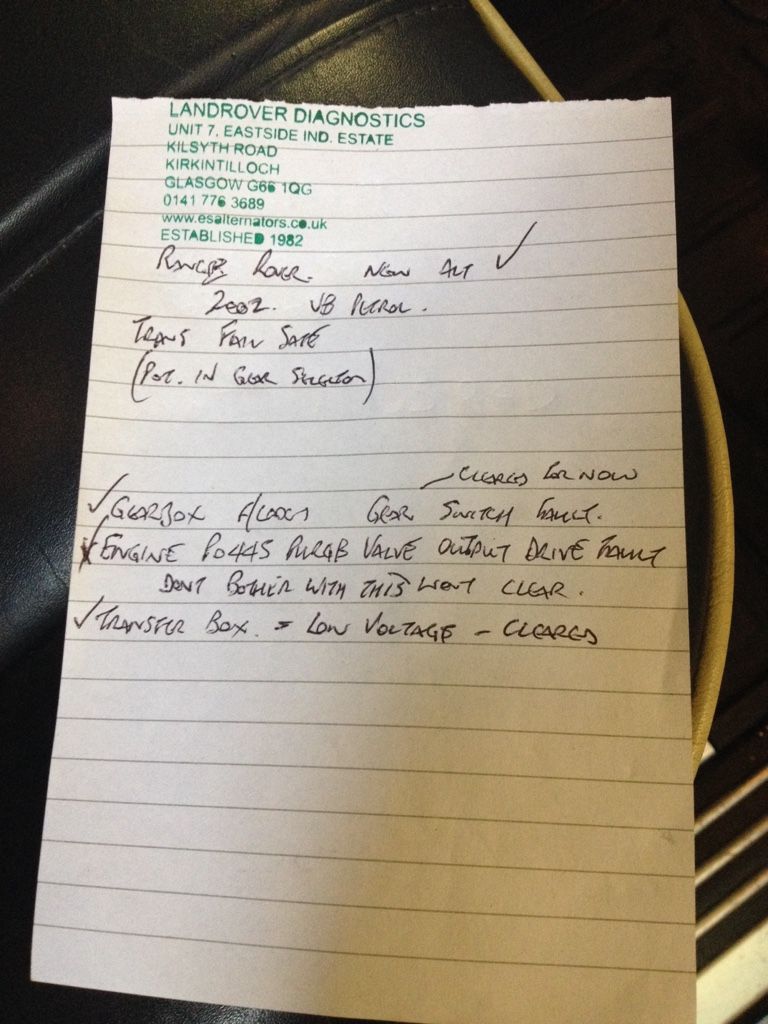 LANDROVER DIAGNOSTICS
UNIT 7, EASTSIDE IND. ESTATE
KILSYTH ROAD
KIRKINTILLOCH
GLASGOW G66 1QG
0141 776 3689
www.esalternators.co.uk
ESTABLISHED 1982
RANGE ROVER. NEW ALT ✓
2002. V8 PETROL.
TRANS FAIL SAFE
(POT. IN GEAR SELECTOR)
- CLEARED FOR NOW
✓ GEARBOX GEAR SWITCH FAULT.
X ENGINE P0445 PURGE VALVE OUTPUT DRIVE FAULT
DONT BOTHER WITH THIS WONT CLEAR.
✓ TRANSFER BOX. = LOW VOLTAGE - CLEARED